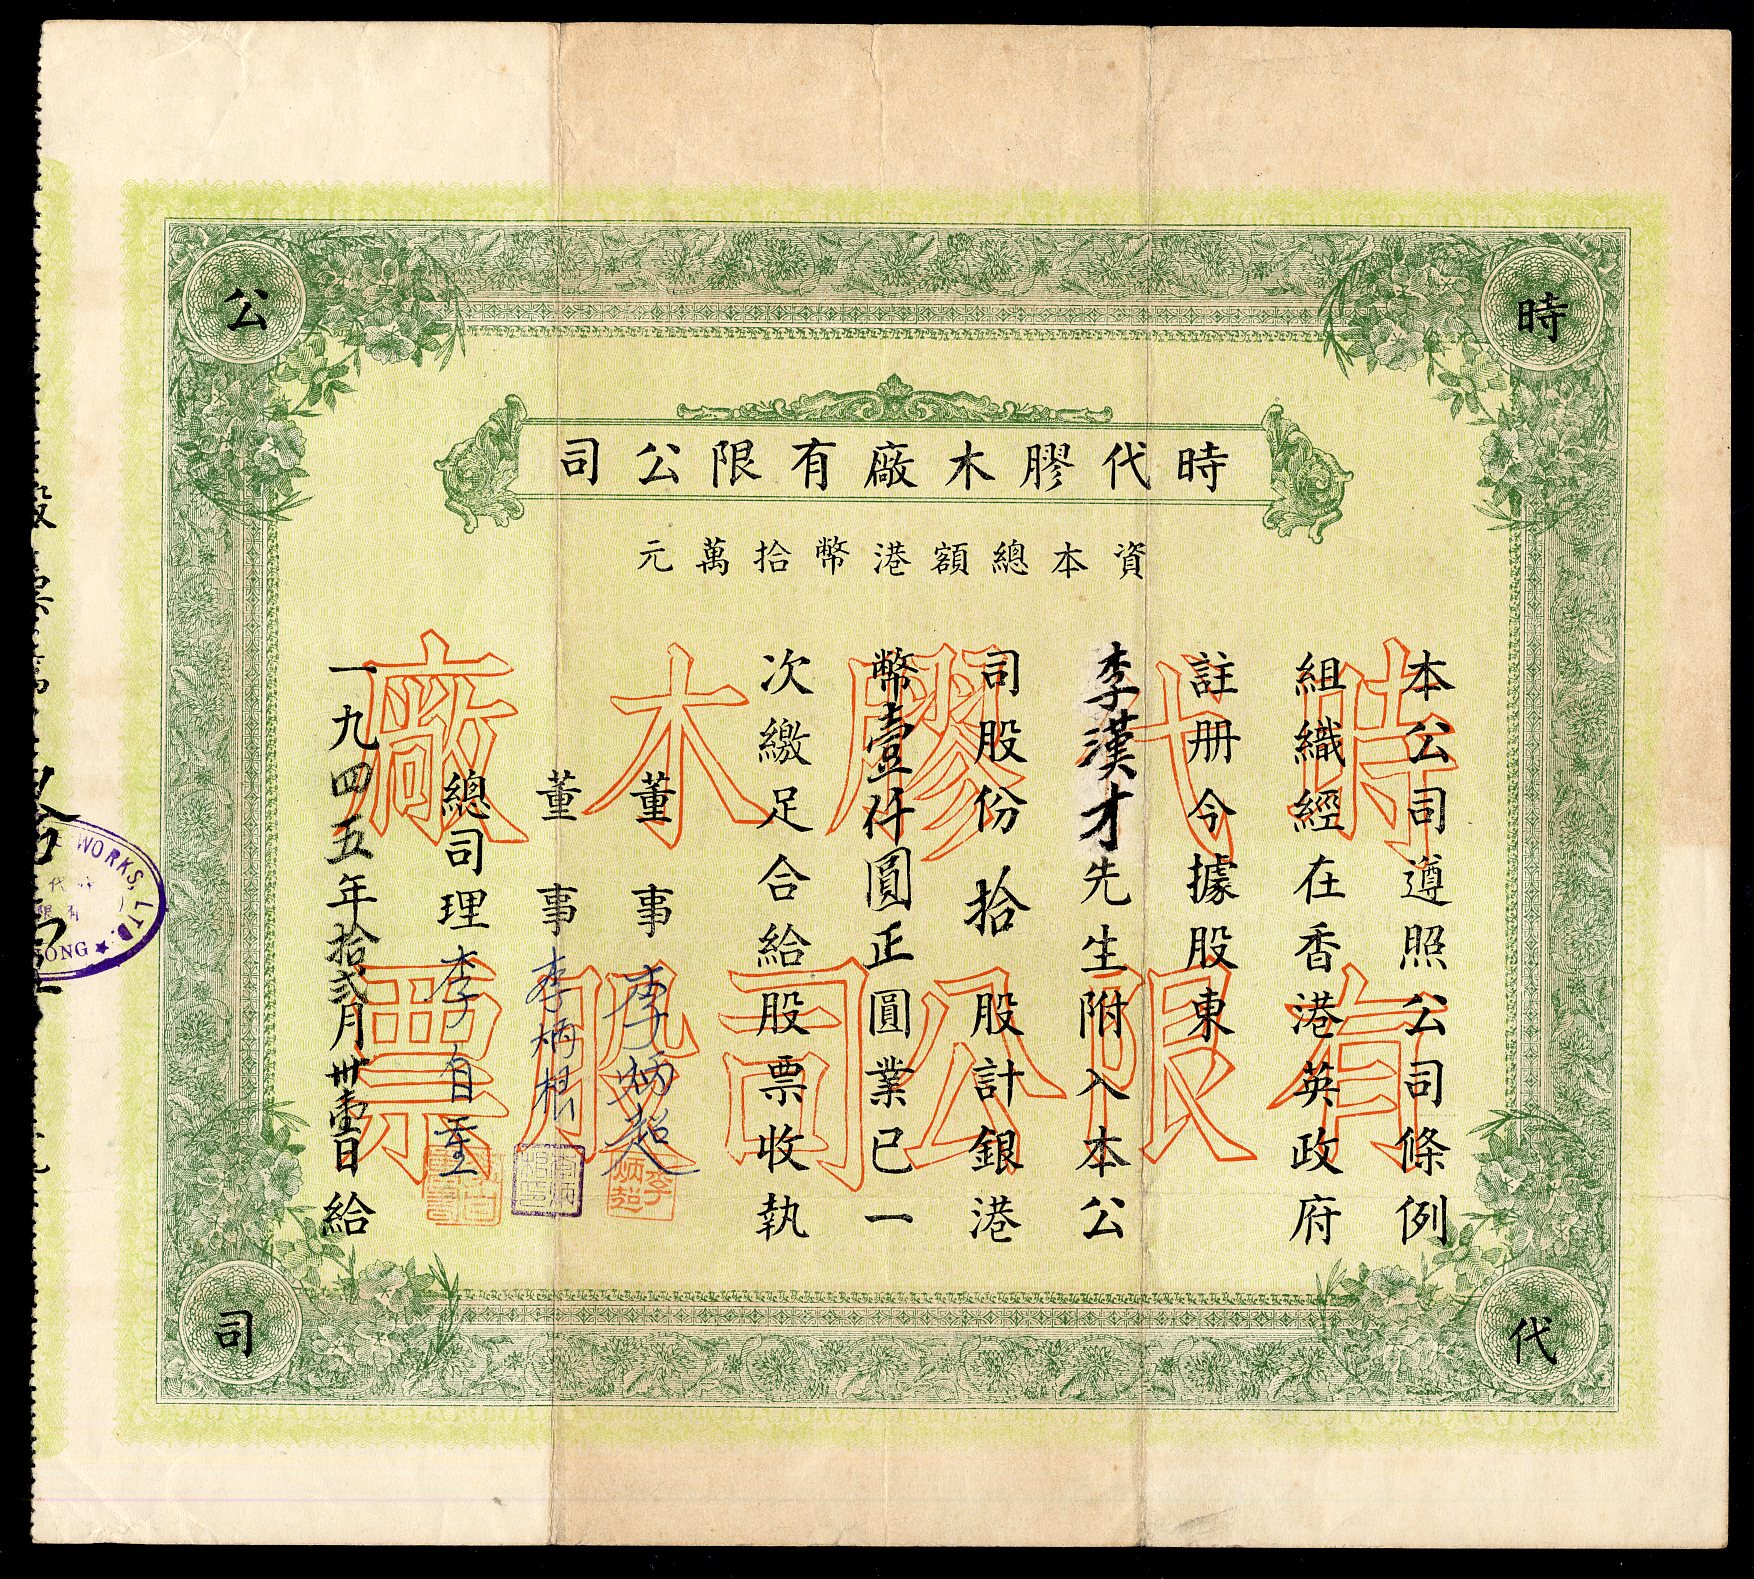 時
代
公
司
時代膠木廠有限公司
資本總額港幣拾萬元
時代膠木廠
有限公司股票
本公司遵照公司條例
組織經在香港英政府
註册令據股東
李漢才先生附入本公
司股份拾股計銀港
幣壹仟圓正圓業已一
次繳足合給股票收執
董事 李炳超
董事 李炳根
總司理 李自重
一九四五年拾貳月卅壹日給
李炳超
WORKS, LTD.
ONG ★